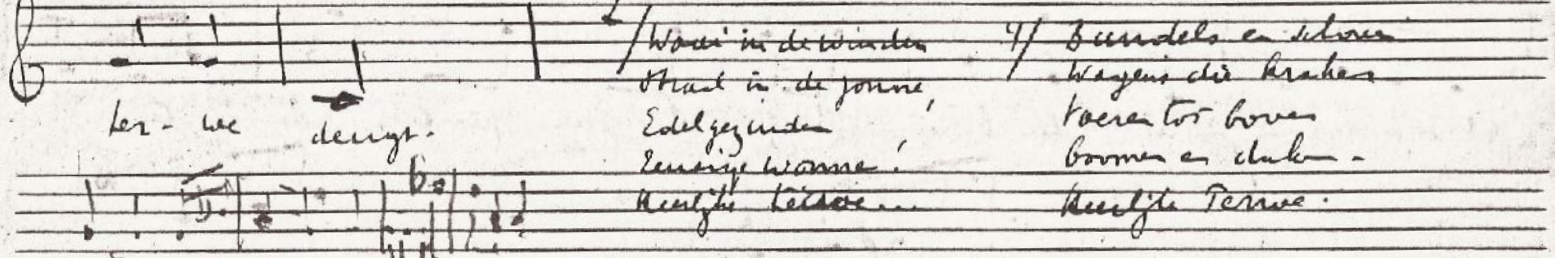 ter-we deugt.
2/ Waai in de winden
Straal in de zonne,
Edelgezinden
Eenige wonne!
Heerlijke terwe...
4/ Bundels en schoven
Wagens die kraken
Voeren tot boven
boomen en daken -
Heerlijke Terwe.